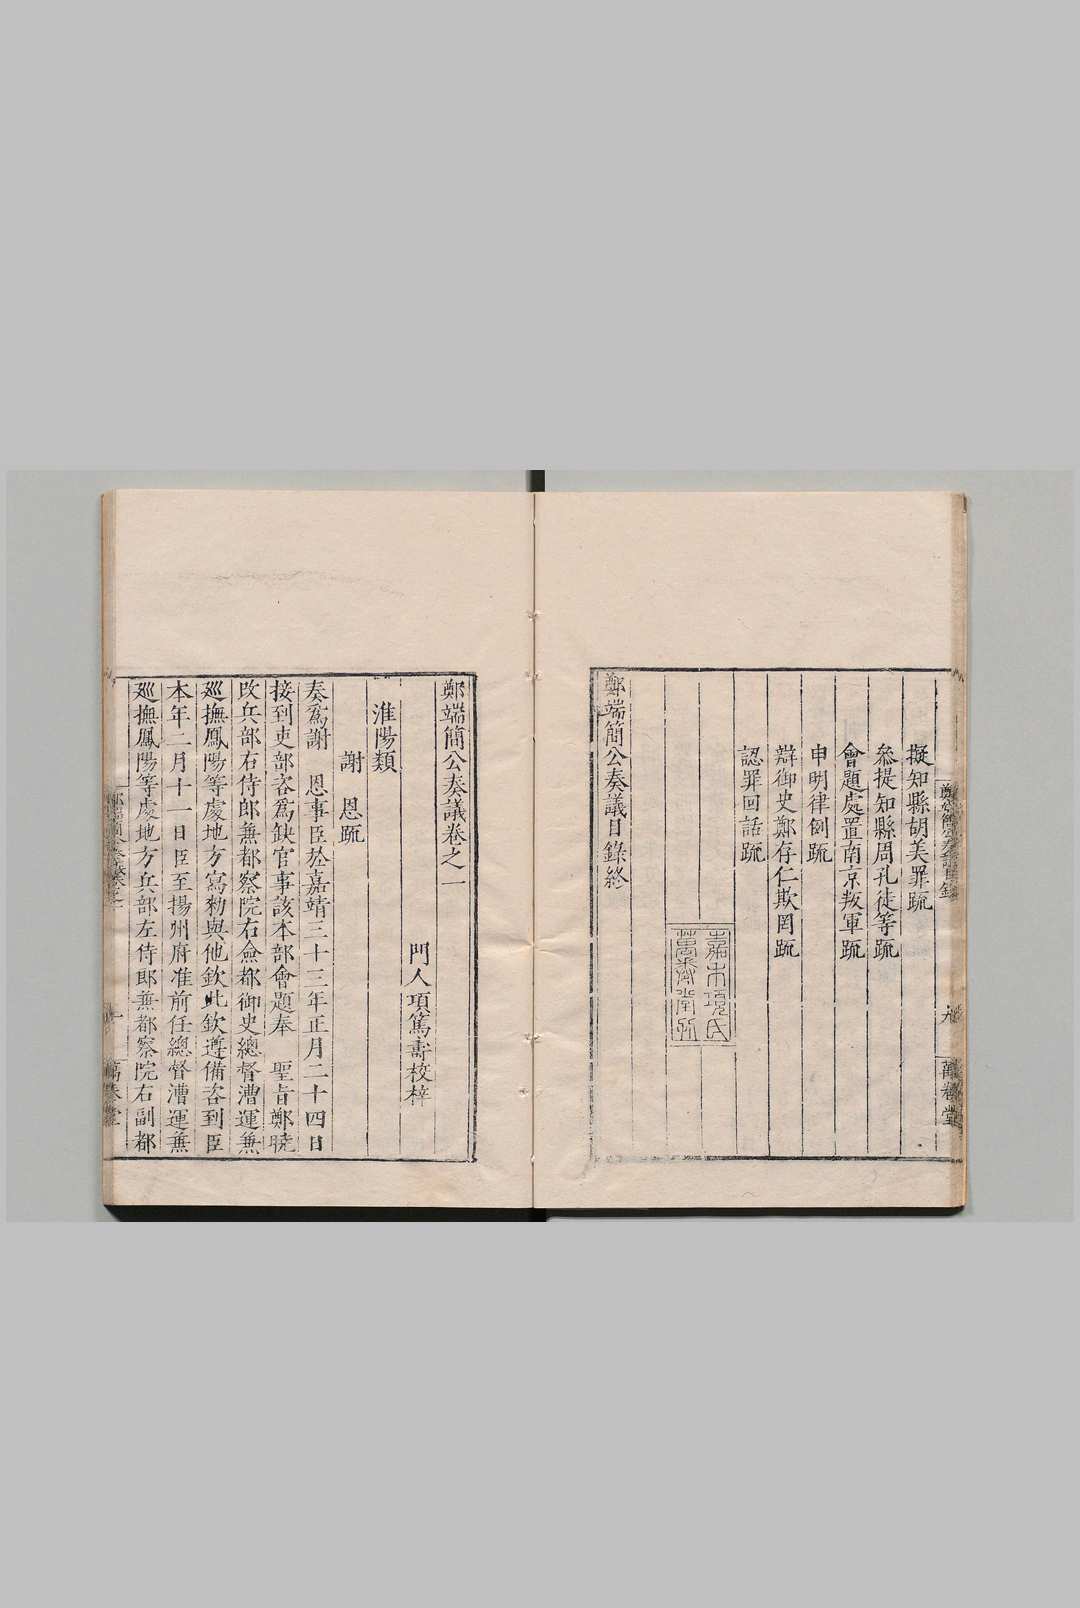 擬知縣胡美罪疏
叅提知縣周孔徒等疏
會題處置南京叛軍疏
申明律例疏
辯御史鄭存仁欺罔疏
認罪回話疏
鄭端簡公奏議目錄終
萬卷堂
鄭端簡公奏議卷之一
門人項篤壽校梓
淮陽類
謝 恩疏
奏爲謝 恩事臣於嘉靖三十三年正月二十四日
接到吏部咨爲缺官事該本部會題奉 聖旨鄭曉
改兵部右侍郎兼都察院右僉都御史總督漕運兼
廵撫鳳陽等處地方寫勑與他欽此欽遵備咨到臣
本年二月十一日臣至揚州府准前任總督漕運兼
廵撫鳳陽等處地方兵部左侍郎兼都察院右副都